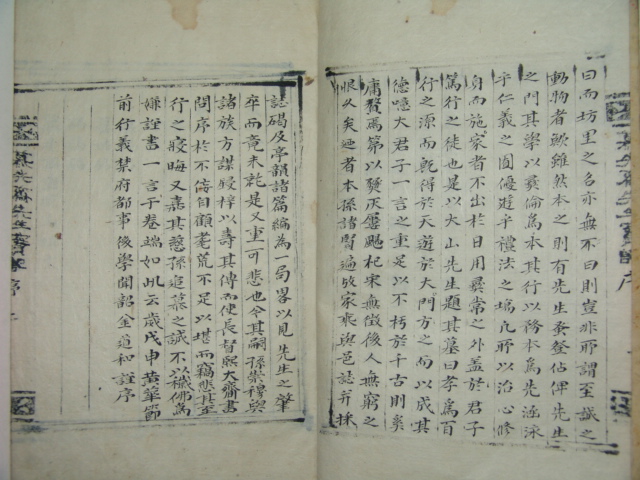 曰而坊里之名亦無不曰則豈非所謂至誠之
動物者歟雖然本之則有先生蚤登佔俾先生
之門其學以彛倫為本其行以務本為先涵泳
乎仁義之囿優遊乎禮法之場凡所以治心修
身而施家者不出於日用彛常之外盖於君子
篤行之徒也是以大山先生題其墓曰孝為百
行之源而執得於天遊於大門方之而以成其
德噫大君子一言之重足以不朽於千古則奚
庸贅焉第以灰㷝颺杞宋無徵後人無窮之
恨以矣廼者本孫諸賢遍攷家乘與邑誌并採
誌碣及亭韻諸篇編為一局畧以見先生之肇
卒而竟未就是又重可悲也今其嗣孫崇稷與
諸族方謀寖梓以壽其傳而使長督熙大齋書
問序於不侫自顧耄荒不足以堪而竊悲其至
行之寢晦又嘉其慈孫追慕之誠不以穢佛為
嫌謹書一言于卷端如此云歲戊申黄華節
前行義禁府都事後學聞韶金道和謹序
先生實
序